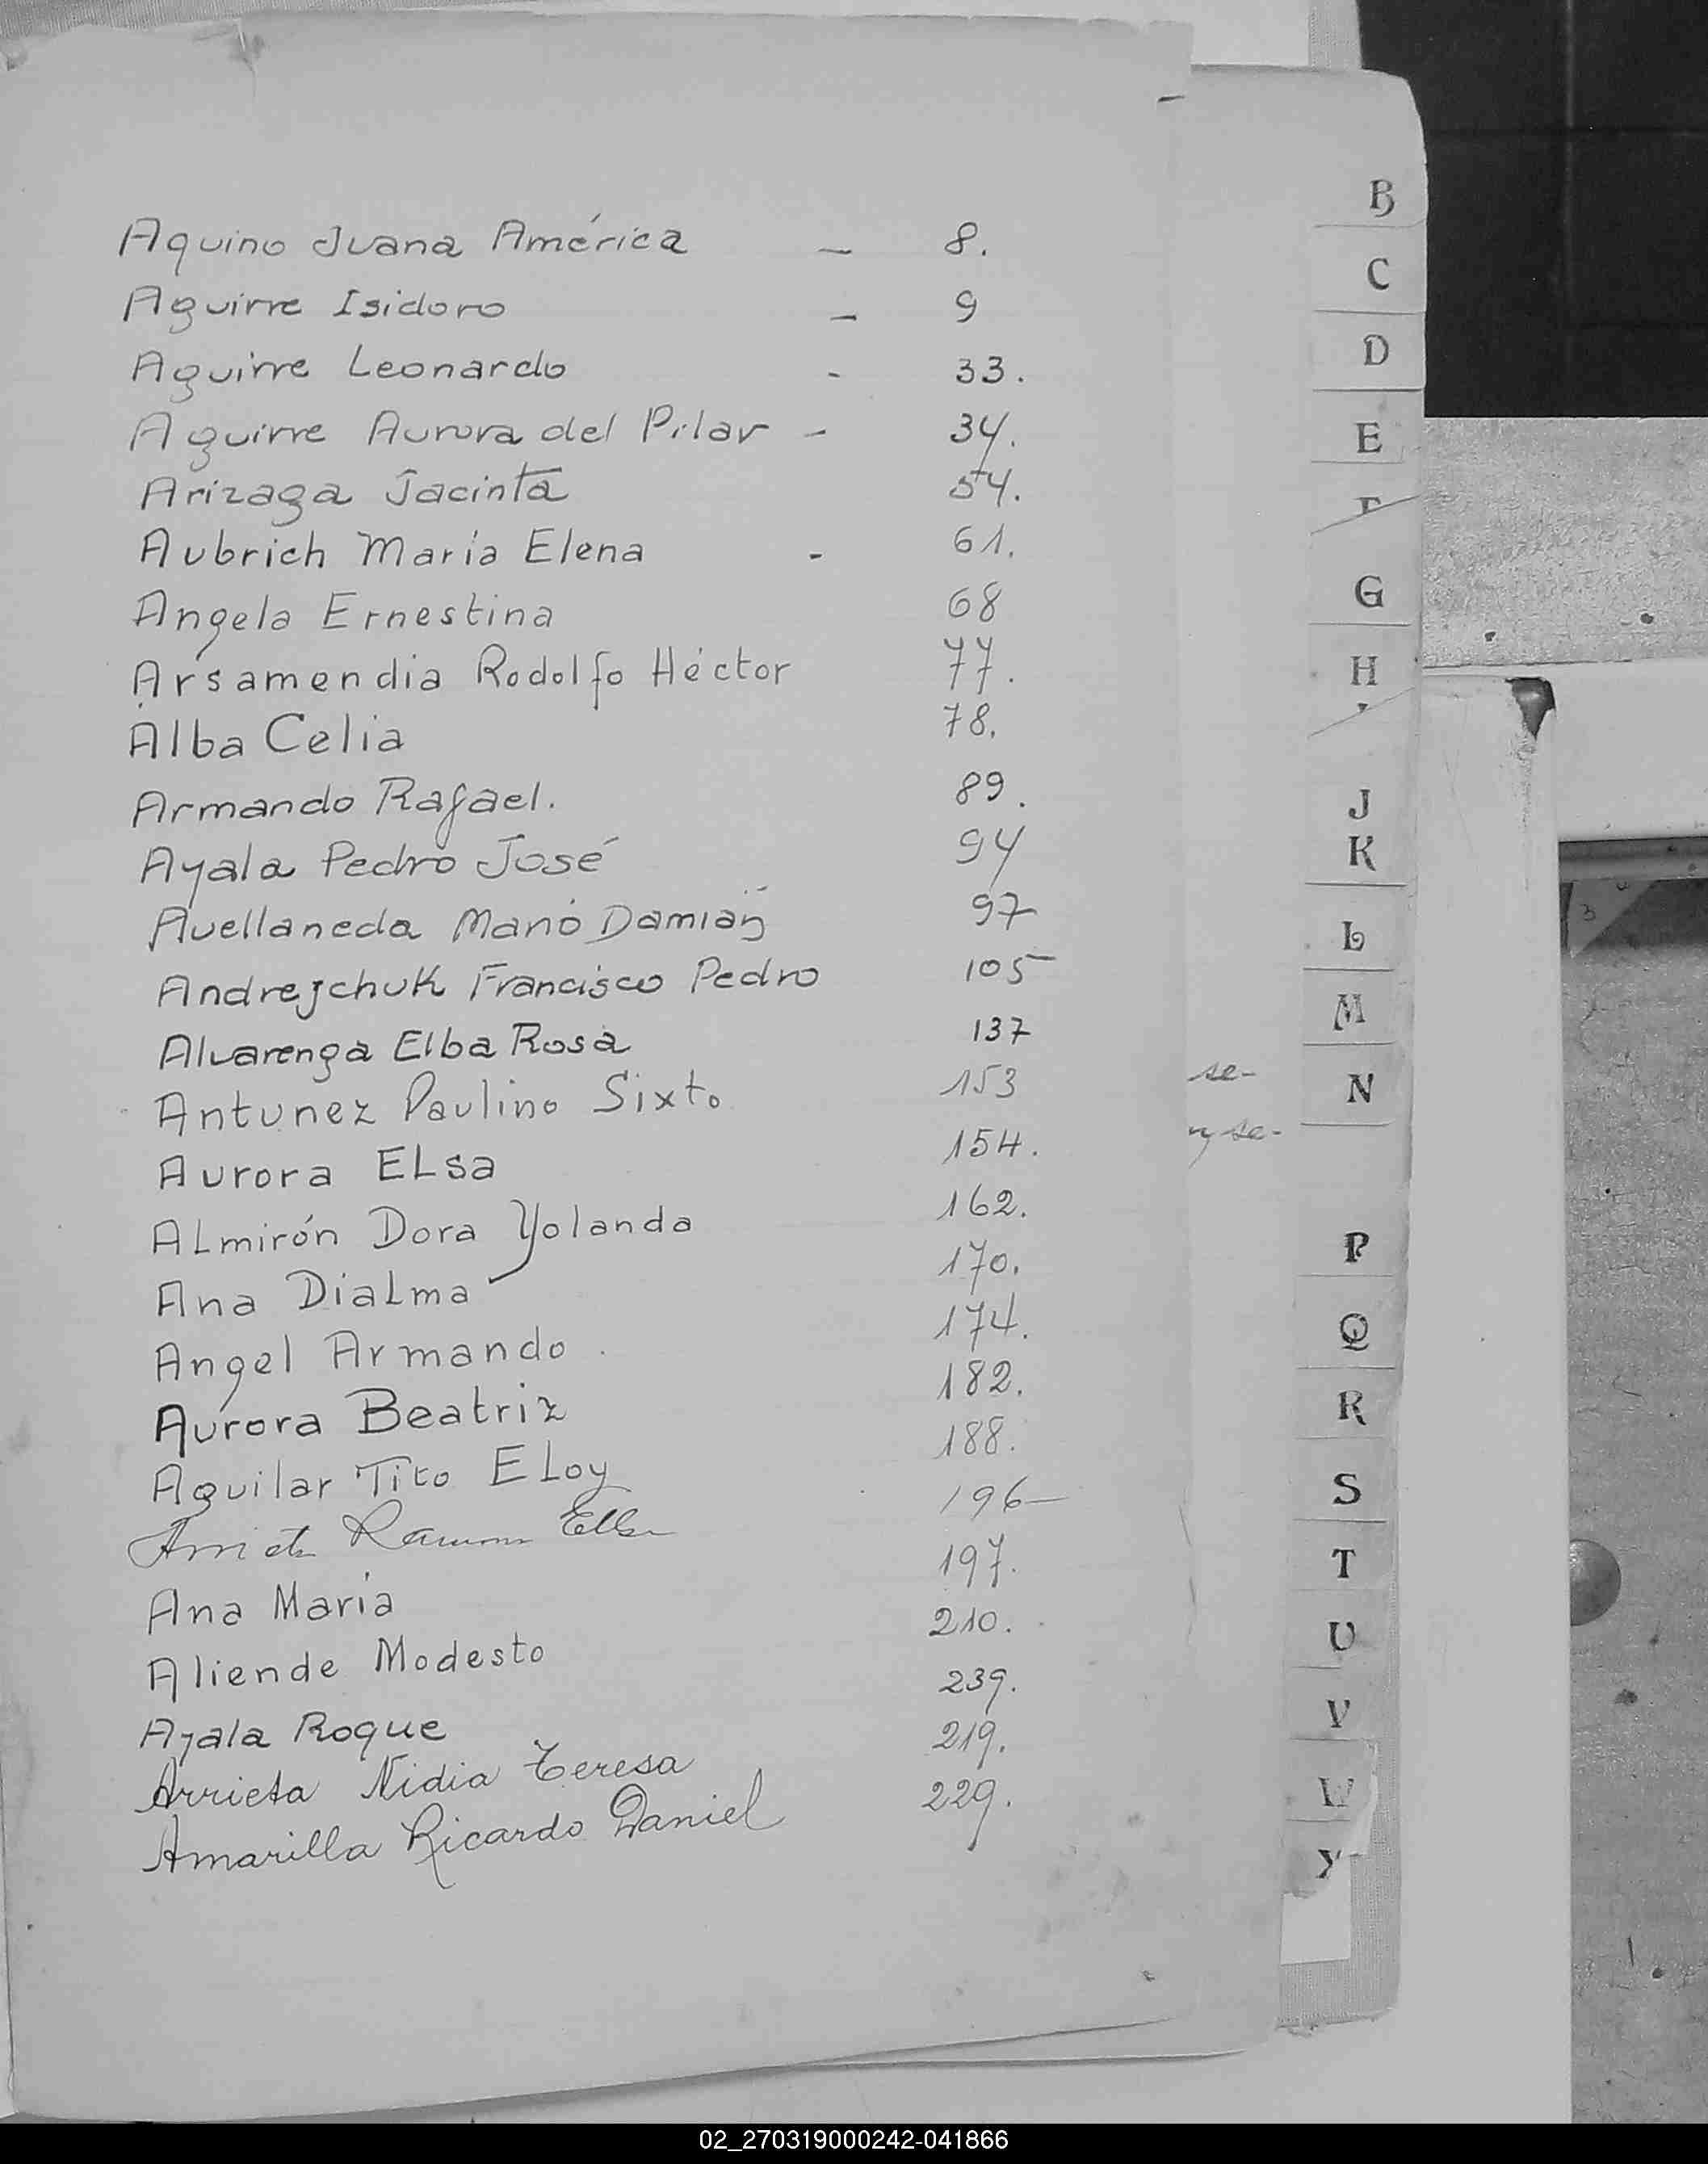 Aquino Juana América - 8.
Aguirre Isidoro - 9
Aguirre Leonardo - 33.
Aguirre Aurora del Pilar - 34.
Arizaga Jacinta 54.
Aubrich María Elena - 61.
Angela Ernestina 68
Arsamendia Rodolfo Héctor 77.
Alba Celia 78.
Armando Rafael. 89.
Ayala Pedro José 94
Avellaneda Damián 97
Andrejchuk Francisco Pedro 105
Alvarenga Elba Rosa 137
Antunez Paulino Sixto 153
Aurora ELsa 154.
ALmirón Dora Yolanda 162.
Ana DiaLma 170.
Angel Armando. 174.
Aurora Beatriz 182.
Aguilar Tito ELoy 188.
Ramon 196-
Ana María 197.
Aliende Modesto 210.
Ayala Roque 239.
Arrieta Nidia Teresa 219.
Amarilla Ricardo Daniel 229.
B
C
D
E
G
H
J
K
L
M
se-
N
P
Q
R
S
T
U
V
W
Y
02_270319000242-041866